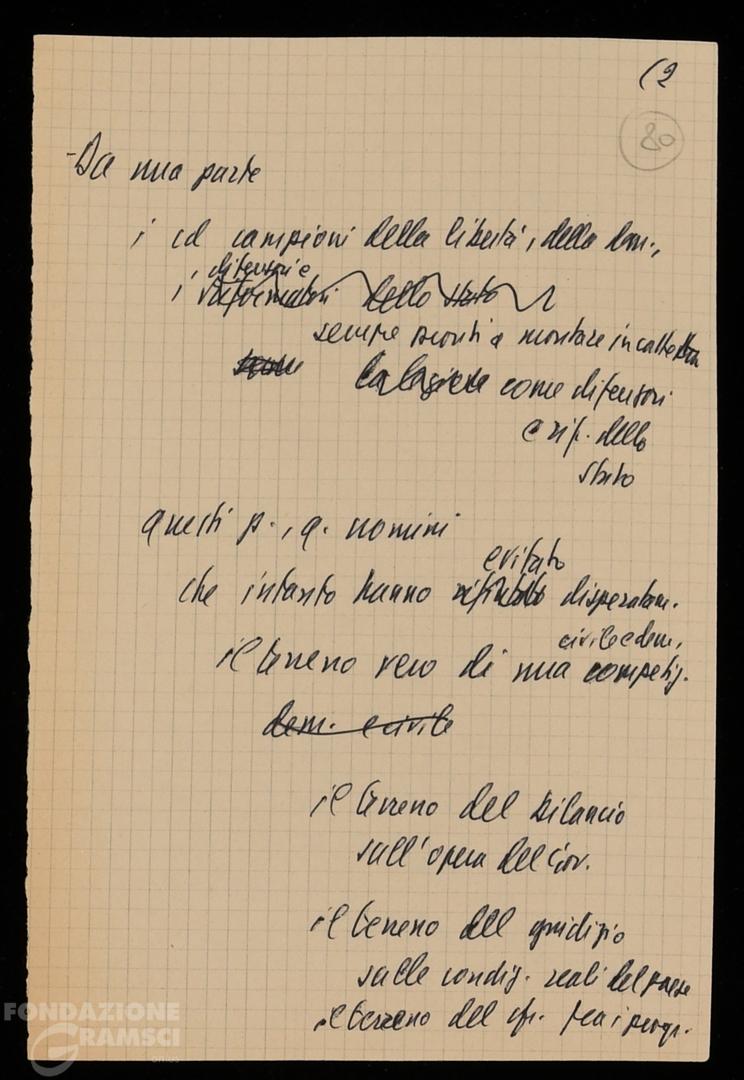 (2
80
- Da una parte
i cd campioni della libertà, della dem.,
difensori e
i riformatori dello stato
sempre pronti a montare in cattedra
come difensori
e rif. dello
stato
questi p., q. uomini
evitato
che intanto hanno rifiutato disperatam.
civile e dem.
il terreno vero di una competiz.
dem. e civile
il terreno del bilancio
sull'opera del Gov.
il terreno del giudizio
sulle condiz. reali del paese
il terreno del cfr. fra i progr.
FONDAZIONE
GRAMSCI
ONLUS